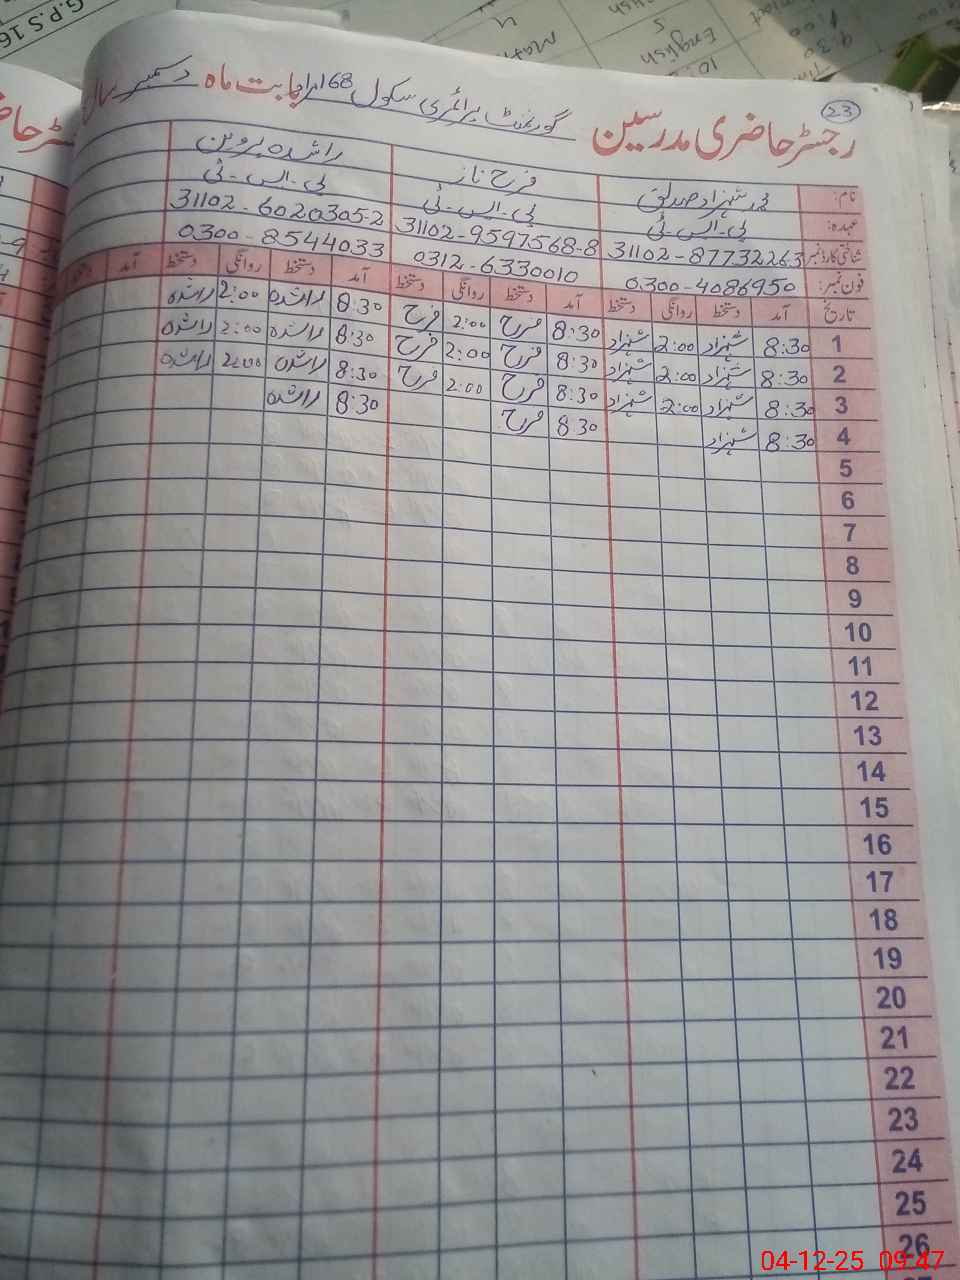 G.P.S 16
English
23
رجسٹر حاضری مدرسین گورنمنٹ پرائمری سکول 168 بابت ماہ دسمبر
نام: محمد شہزاد صدیق فرح ناز راشدہ پروین
عہدہ: پی-ایس-ٹی پی-ایس-ٹی پی-ایس-ٹی
شناختی کارڈ نمبر 31102-87732263 31102-9597568-8 31102-6020305-2
فون نمبر: 0300-4086950 0312-6330010 0300-8544033
تاریخ آمد دستخط روانگی دستخط آمد دستخط روانگی دستخط آمد دستخط روانگی دستخط آمد دستخط
1 8:30 شہزاد 2:00 شہزاد 8:30 فرح 2:00 فرح 8:30 راشدہ 2:00 راشدہ
2 8:30 شہزاد 2:00 شہزاد 8:30 فرح 2:00 فرح 8:30 راشدہ 2:00 راشدہ
3 8:30 شہزاد 2:00 شہزاد 8:30 فرح 2:00 فرح 8:30 راشدہ 2:00 راشدہ
4 8:30 شہزاد 8:30 فرح 8:30 راشدہ
5
6
7
8
9
10
11
12
13
14
15
16
17
18
19
20
21
22
23
24
25
26
04-12-25 09:47